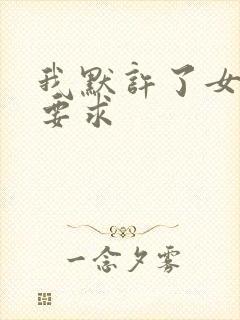 我默許了女
要求
一念夕霧